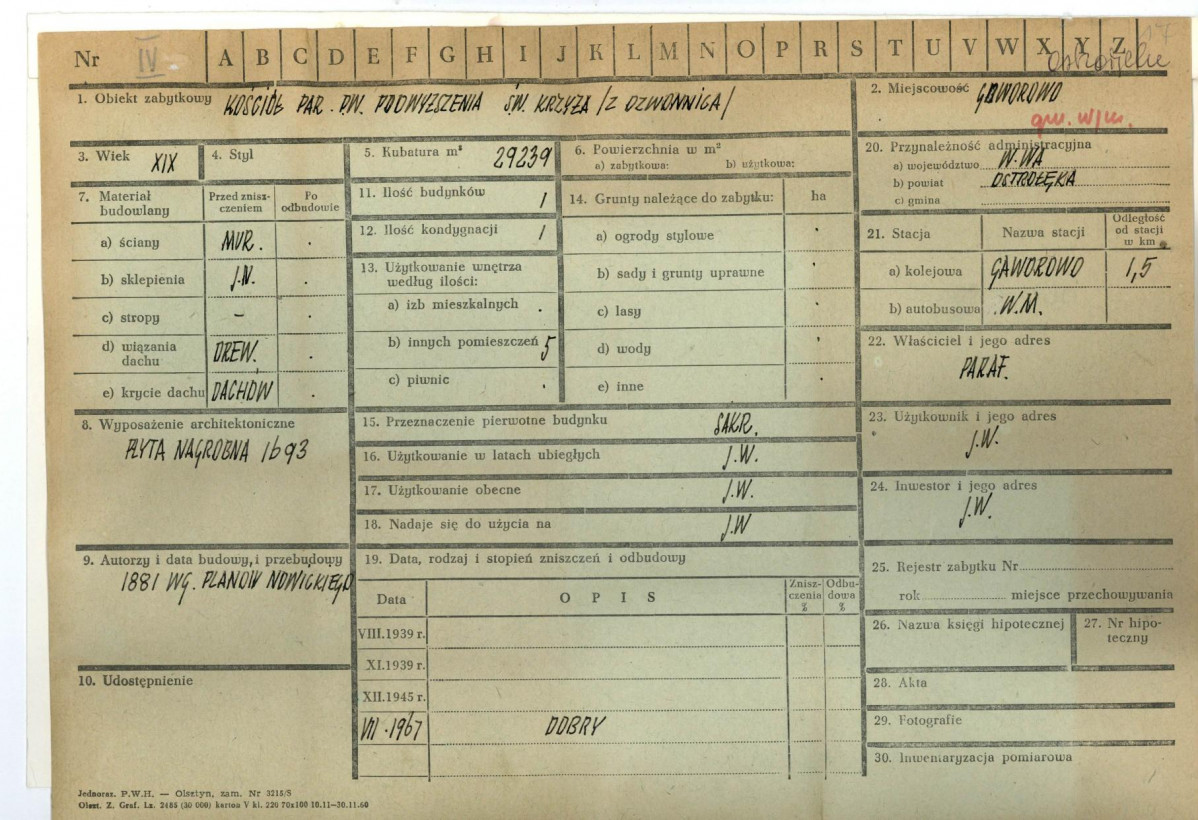 Nr IV A B C D E F G H I J K L M N O P R S T U V W X Y Z 17
Ostrołęckie
1. Obiekt zabytkowy KOŚCIÓŁ PAR. P.W. PODWYŻSZENIA ŚW. KRZYŻA /Z DZWONNICĄ/
2. Miejscowość GAWOROWO
gm. w/m.
3. Wiek XIX
4. Styl
5. Kubatura m³ 29239
6. Powierzchnia w m²
a) zabytkowa: b) użytkowa:
20. Przynależność administracyjna
a) województwo W-WA
b) powiat OSTROŁĘKA
c) gmina
7. Materiał budowlany
Przed zniszczeniem
Po odbudowie
a) ściany MUR. .
b) sklepienia J.W. .
c) stropy – .
d) wiązania dachu DREW. .
e) krycie dachu DACHÓW .
11. Ilość budynków 1
12. Ilość kondygnacji 1
13. Użytkowanie wnętrza
według ilości:
a) izb mieszkalnych .
b) innych pomieszczeń 5
c) piwnic .
14. Grunty należące do zabytku: ha
a) ogrody stylowe .
b) sady i grunty uprawne .
c) lasy
d) wody .
e) inne .
21. Stacja Nazwa stacji Odległość od stacji w km
a) kolejowa GAWOROWO 1,5
b) autobusowa W.M.
22. Właściciel i jego adres
PARAF.
8. Wyposażenie architektoniczne
PŁYTA NAGROBNA 1693
15. Przeznaczenie pierwotne budynku SAKR.
16. Użytkowanie w latach ubiegłych J.W.
17. Użytkowanie obecne J.W.
18. Nadaje się do użycia na J.W
23. Użytkownik i jego adres
J.W.
24. Inwestor i jego adres
J.W.
9. Autorzy i data budowy, i przebudowy
1881 WG. PLANÓW NOWICKIEGO
10. Udostępnienie
19. Data, rodzaj i stopień zniszczeń i odbudowy
Data OPIS Zniszczenia % Odbudowa %
VIII.1939 r.
XI.1939 r.
XII.1945 r.
VII.1967 DOBRY
25. Rejestr zabytku Nr
rok miejsce przechowywania
26. Nazwa księgi hipotecznej
27. Nr hipoteczny
28. Akta
29. Fotografie
30. Inwentaryzacja pomiarowa
Jednoraz. P.W.H. — Olsztyn, zam. Nr 3215/S
Olszt. Z. Graf. Lz. 2485 (30 000) karton V kl. 220 70x100 10.11—30.11.60